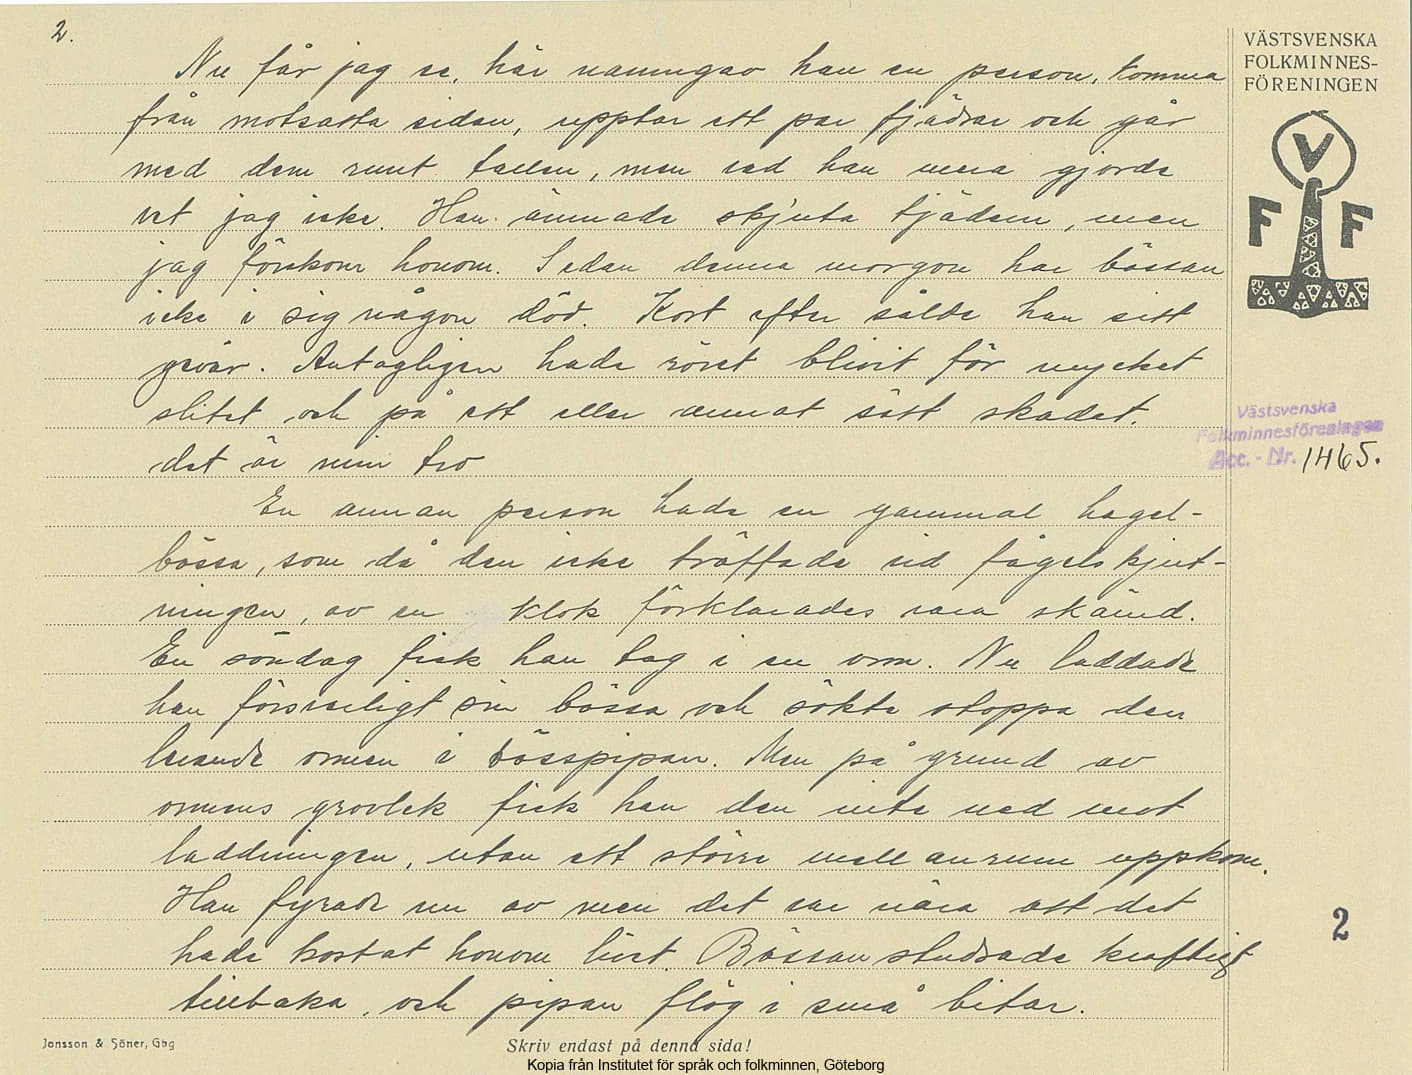 2.
VÄSTSVENSKA
FOLKMINNES-
FÖRENINGEN
V
F F
Nu får jag se, här namngav han en person, komma
från motsatta sidan, upptar ett par fjädrar och går
med dem runt tallen, men vad han mera gjorde
vet jag icke. Han ämnade skjuta tjädern, men
jag förekom honom. Sedan denna morgon har bössan
icke i sig någon död. Kort efter sålde han sitt
gevär. Antagligen hade röret blivit för mycket
slitet och på ett eller annat sätt skadat.
det är min tro
Västsvenska
Folkminnesföreningen
Acc. - Nr. 1465.
En annan person hade en gammal hagel-
bössa, som då den icke träffade vid fågelskjut-
ningen, av en klok förklarades vara skämd.
En söndag fick han tag i en orm. Nu laddade
han försvarligt sin bössa och sökte stoppa den
levande ormen i bösspipan. Men på grund av
ormens grovlek fick han den inte ned mot
laddningen, utan ett större mellanrum uppkom.
Han fyrade nu av men det var nära att det
hade kostat honom livet. Bössan studsade kraftigt
tillbaka, och pipan flög i små bitar.
2
Jonsson & Söner, Gbg
Skriv endast på denna sida!
Kopia från Institutet för språk och folkminnen, Göteborg